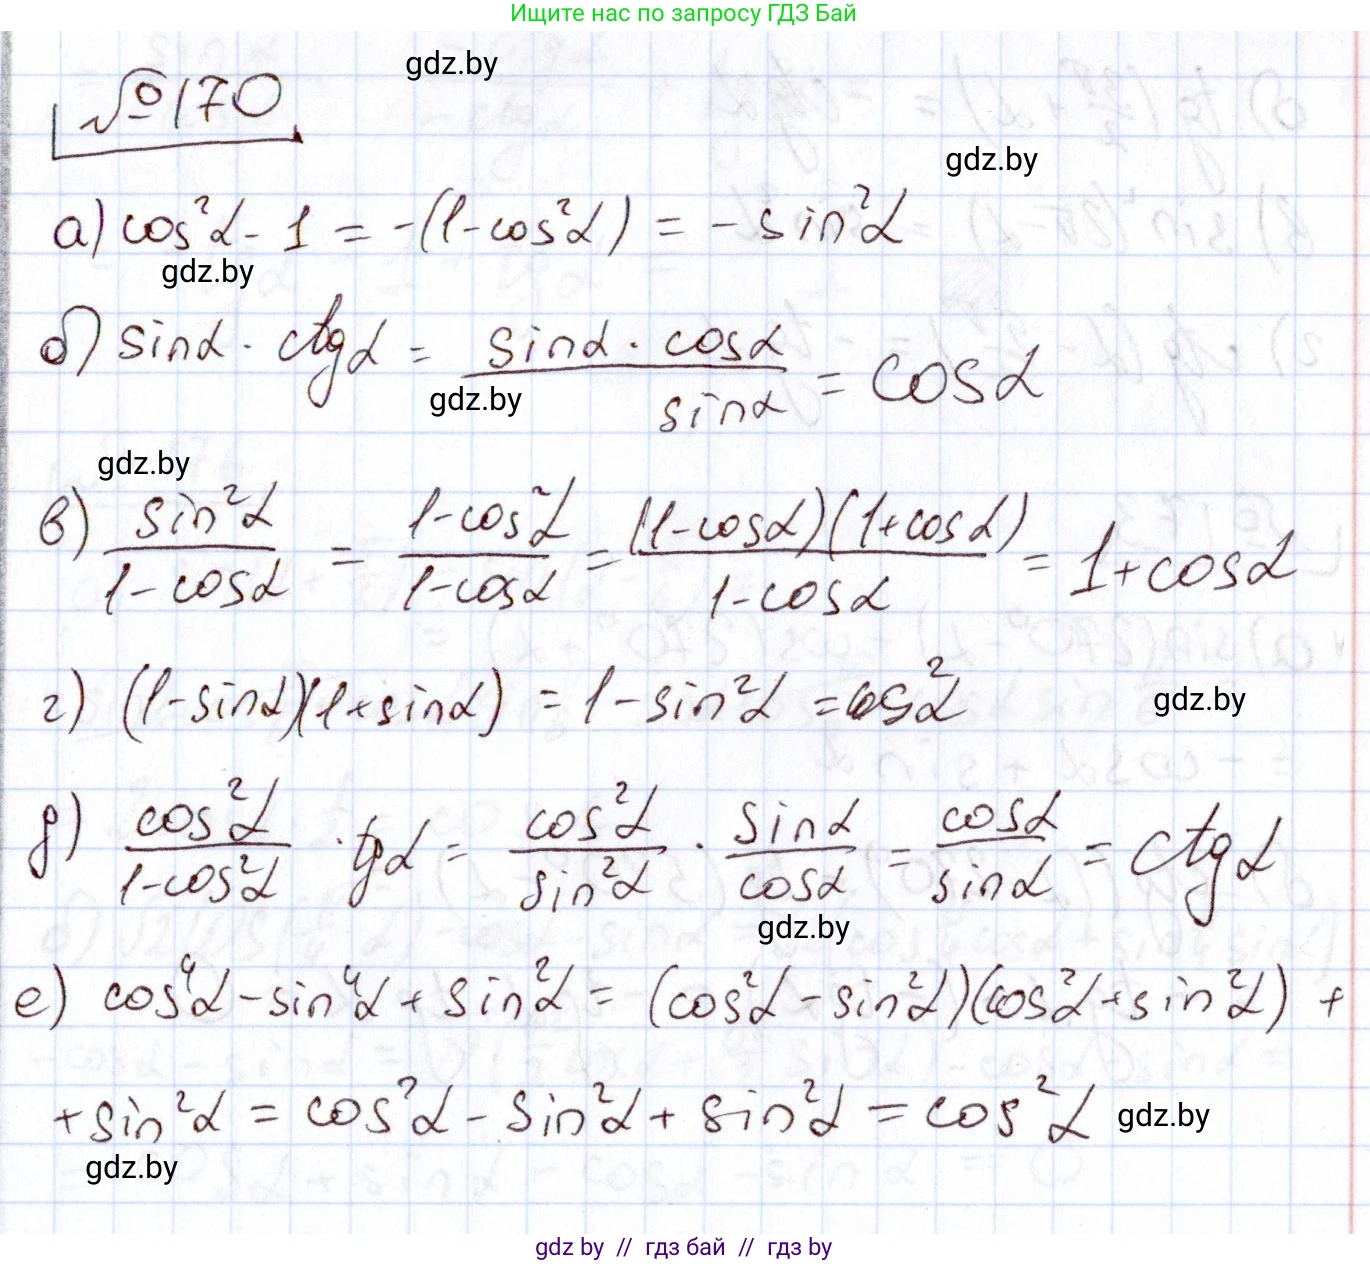 Ищите нас по запросу ГДЗ Бай
gdz.by
№170
gdz.by
а) cos²α - 1 = -(1-cos²α) = -sin²α
gdz.by
б) sinα · ctgα = (sinα · cosα)/sinα = cosα
gdz.by
gdz.by
в) sin²α/(1-cosα) = (1-cos²α)/(1-cosα) = (1-cosα)(1+cosα)/(1-cosα) = 1+cosα
г) (1-sinα)(1+sinα) = 1-sin²α = cos²α
gdz.by
д) cos²α/(1-cos²α) · tgα = cos²α/sin²α · sinα/cosα = cosα/sinα = ctgα
gdz.by
е) cos⁴α - sin⁴α + sin²α = (cos²α - sin²α)(cos²α + sin²α) +
+ sin²α = cos²α - sin²α + sin²α = cos²α
gdz.by
gdz.by
gdz by // гдз бай // гдз by